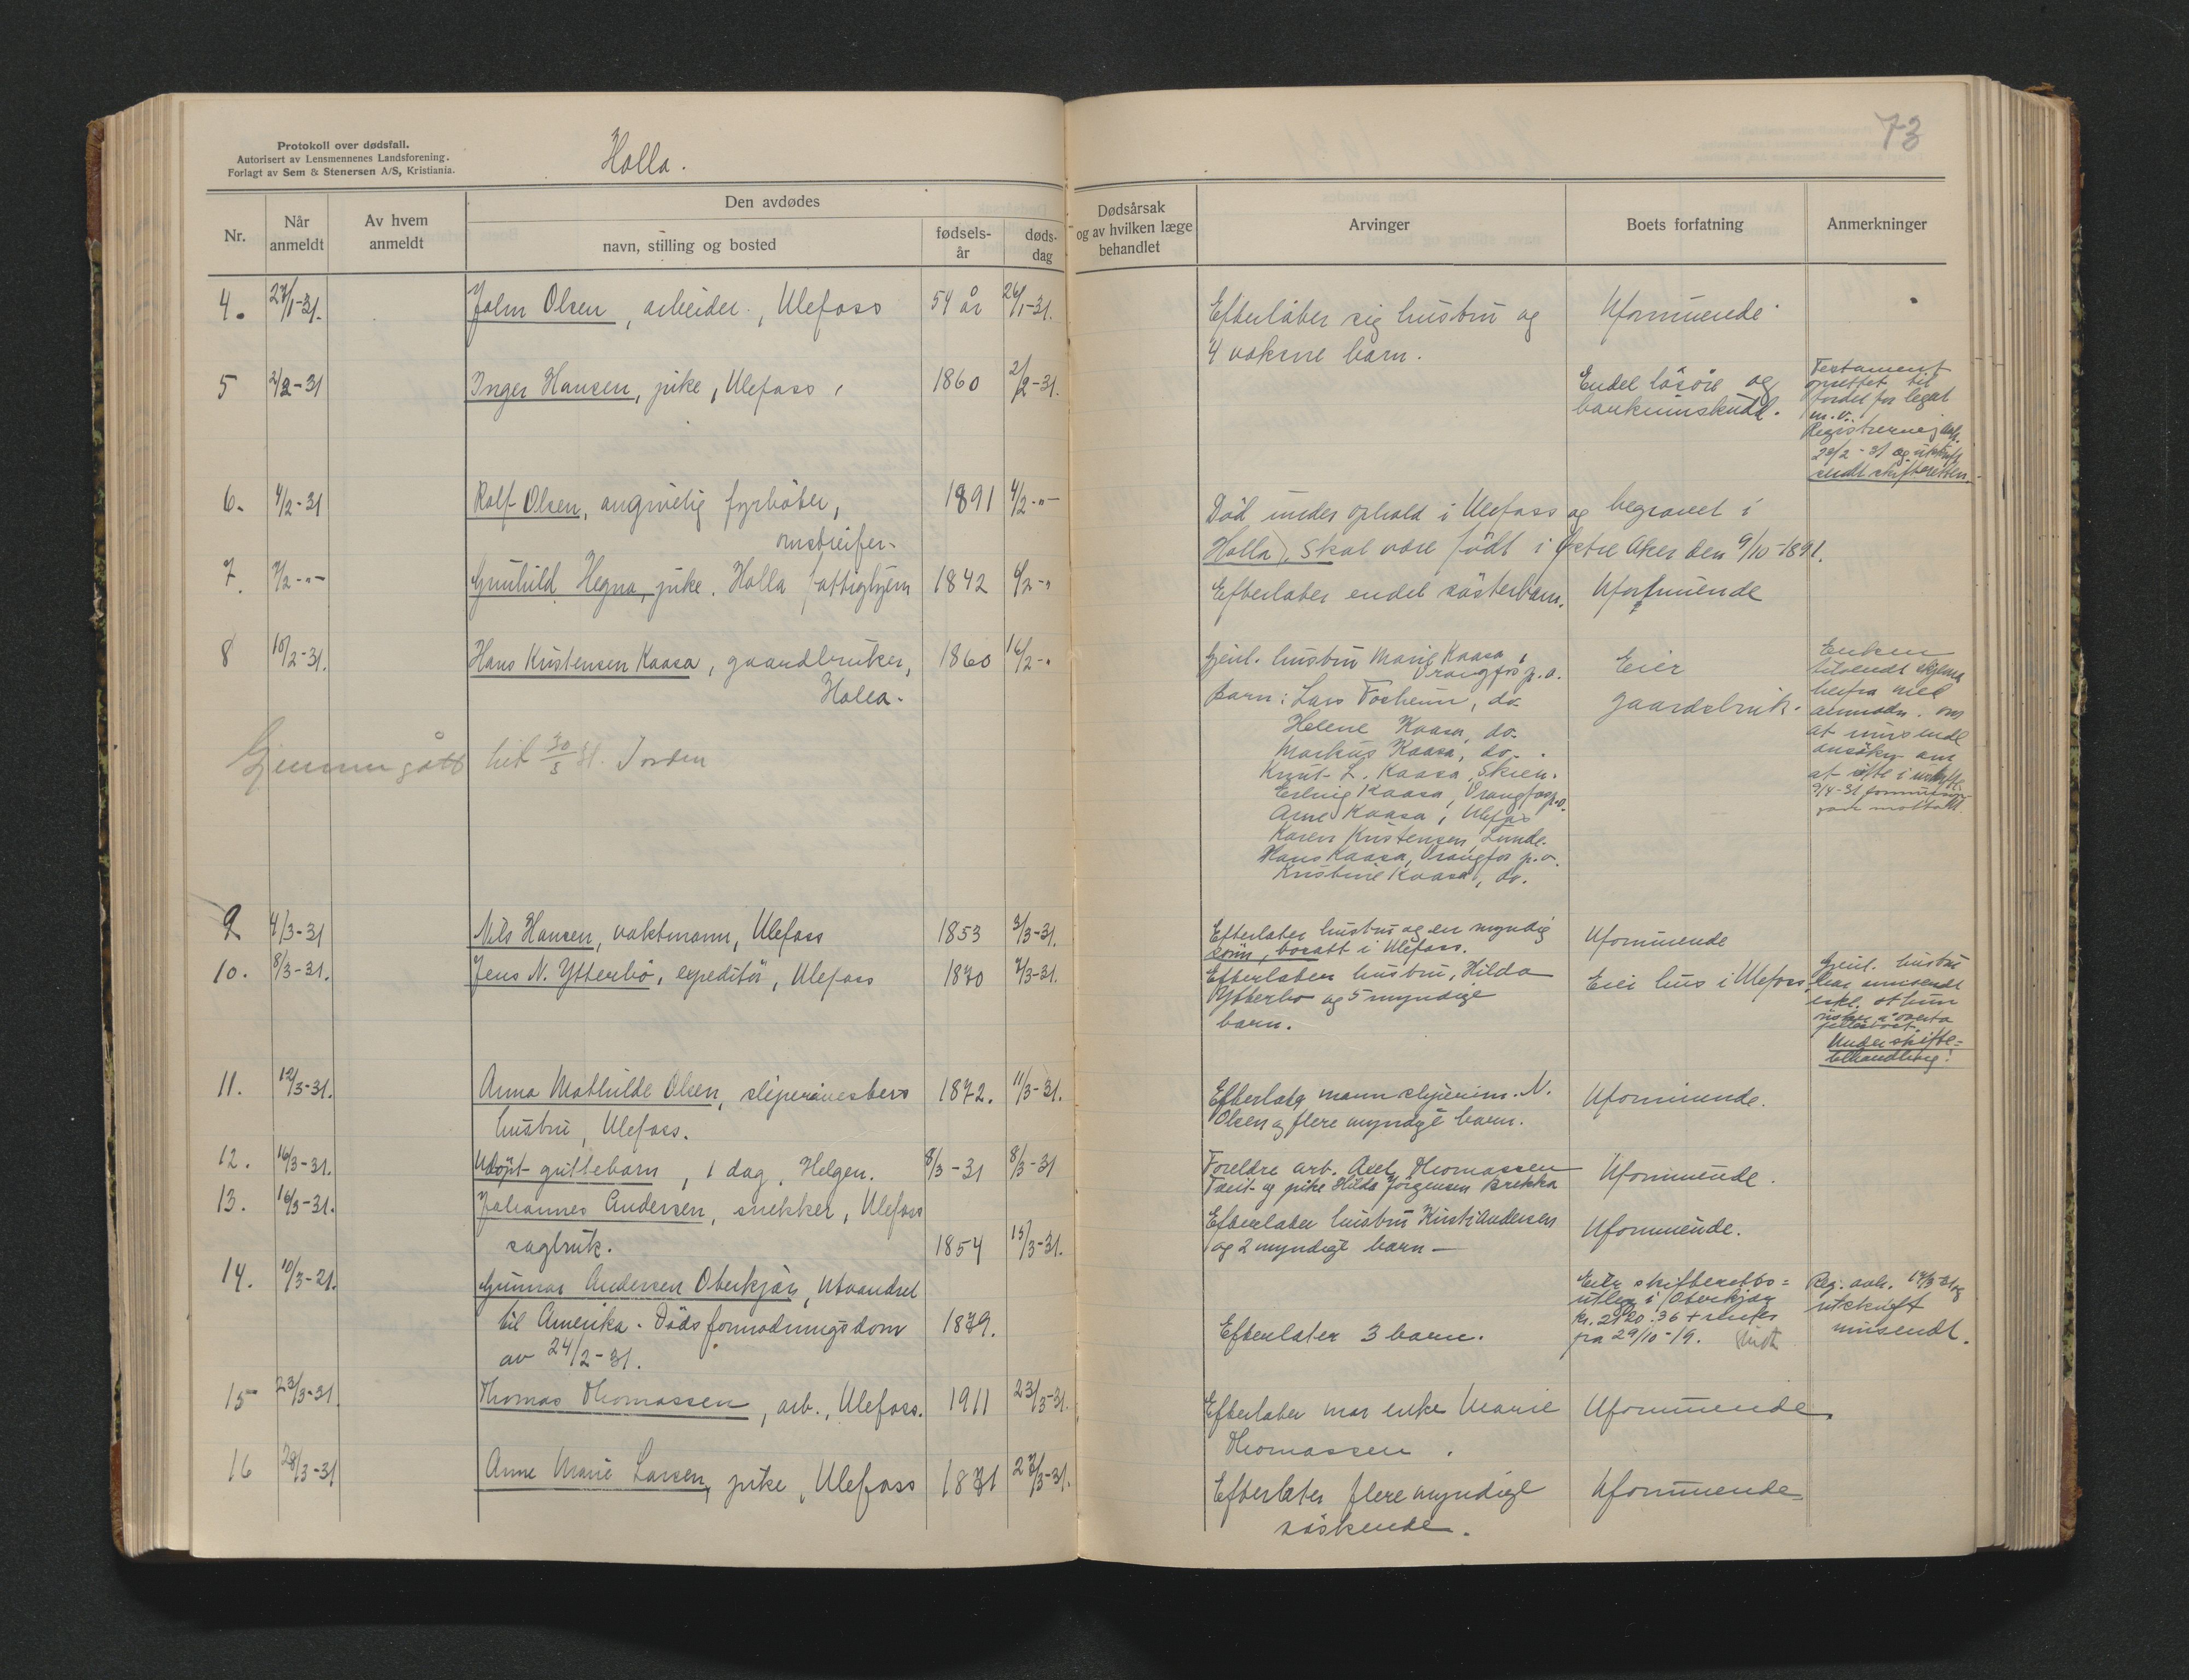 73
Protokoll over dødsfall.
Autorisert av Lensmennenes Landsforening.
Forlagt av Sem & Stenersen A/S, Kristiania.
Holla.
Nr.
Når anmeldt
Av hvem anmeldt
Den avdødes
navn, stilling og bosted
fødsels-år
døds-dag
Dødsårsak og av hvilken læge behandlet
Arvinger
Boets forfatning
Anmerkninger
4. 27/1-31. John Olsen, arbeider, Ulefoss 54 år 26/1-31. Efterlater sig hustru og Uformuende
4 voksne barn.
5 2/2-31 Inger Hansen, pike, Ulefoss, 1860 2/2-31. Endel løsøre og
bankinnskudd.
Testament
oprettet til
fordel for legat
m.v.
Registrering avh.
28/2-31 og utskrift
sendt skifteretten.
6. 4/2-31 Rolf Olsen, angivelig fyrbøter, 1891 4/2-"-
omstreifer.
Død under ophold i Ulefoss og begravet i
Holla. Skal være født i Østre Aker den 9/10-1891.
7. 7/2-"- Gunhild Hegna, pike. Holla fattighjem 1842 6/2-" Efterlater endel søsterbarn. Uformuende
8 18/2-31. Hans Kristensen Kaasa, gaardbruker, 1860 16/2-"
Holla.
Gjenl. hustru Marie Kaasa,
Vrangfos p.o.
barn: Lars Fosheim, do
Helene Kaasa, do.
Markus Kaasa, do.
Knut L. Kaasa, Skien.
Erling Kaasa, Vrangfos p.o.
Arne Kaasa, Ulefos
Karen Kristensen, Lunde.
Hans Kaasa, Vrangfos p.o.
Kristine Kaasa, do.
Eier
gaardsbruk.
Enken
tilsendt skjema
herfra med
anmodn. om
at innsende
ansøkn. om
at sitte i uskifte
9/4-31
Gjennemgått hit 30/3 31. Jorden
9 4/3-31 Nils Hansen, vaktmann, Ulefoss 1853 3/3-31. Efterlater hustru og en myndig Uformuende
sønn, bosatt i Ulefoss.
10. 8/3-31. Jens N. Ytterbø, expeditør, Ulefoss 1870 7/3-31. Efterlater hustru, Hilda Eier hus i Ulefoss.
Ytterbø og 5 myndige
barn.
Gjenl. hustru
har innsendt
erkl. at hun
ønsker å overta
fellesboet.
Under skifte-
behandling!
11. 12/3-31. Anna Mathilde Olsen, sliperimesters 1872. 11/3-31. Efterlater mann sliperim. N. Uformuende.
hustru, Ulefoss. Olsen og flere myndige barn.
12. 16/3-31. Udøpt guttebarn, 1 dag, Helgen. 8/3-31 8/3-31 Foreldre arb. Axel Thomassen Uformuende.
Tveit og pike Hilda Jørgensen Brekka
13. 16/3-31. Johannes Andersen, snekker, Ulefoss Efterlater hustru Kirsti Andersen Uformuende.
sagbruk. 1854 15/3-31. og 2 myndige barn
14. 10/3-21. Gunnar Andersen Oterkjær, utvandret
til Amerika. Dødsformodningsdom 1879. Efterlater 3 barn.
av 24/2-31.
Eier skifteretts-
utlegg i Oterkjær
kr. 2120.36 + renter
fra 29/10-19.
Reg. avh. 14/3-31 og
utskrift
innsendt.
15 23/3-31 Thomas Thomassen, arb., Ulefoss. 1911 23/3-31. Efterlater mor enke Marie Uformuende.
Thomassen.
16 28/3-31 Anne Marie Larsen, pike, Ulefoss 1871 27/3-31. Efterlater flere myndige Uformuende.
søskende.